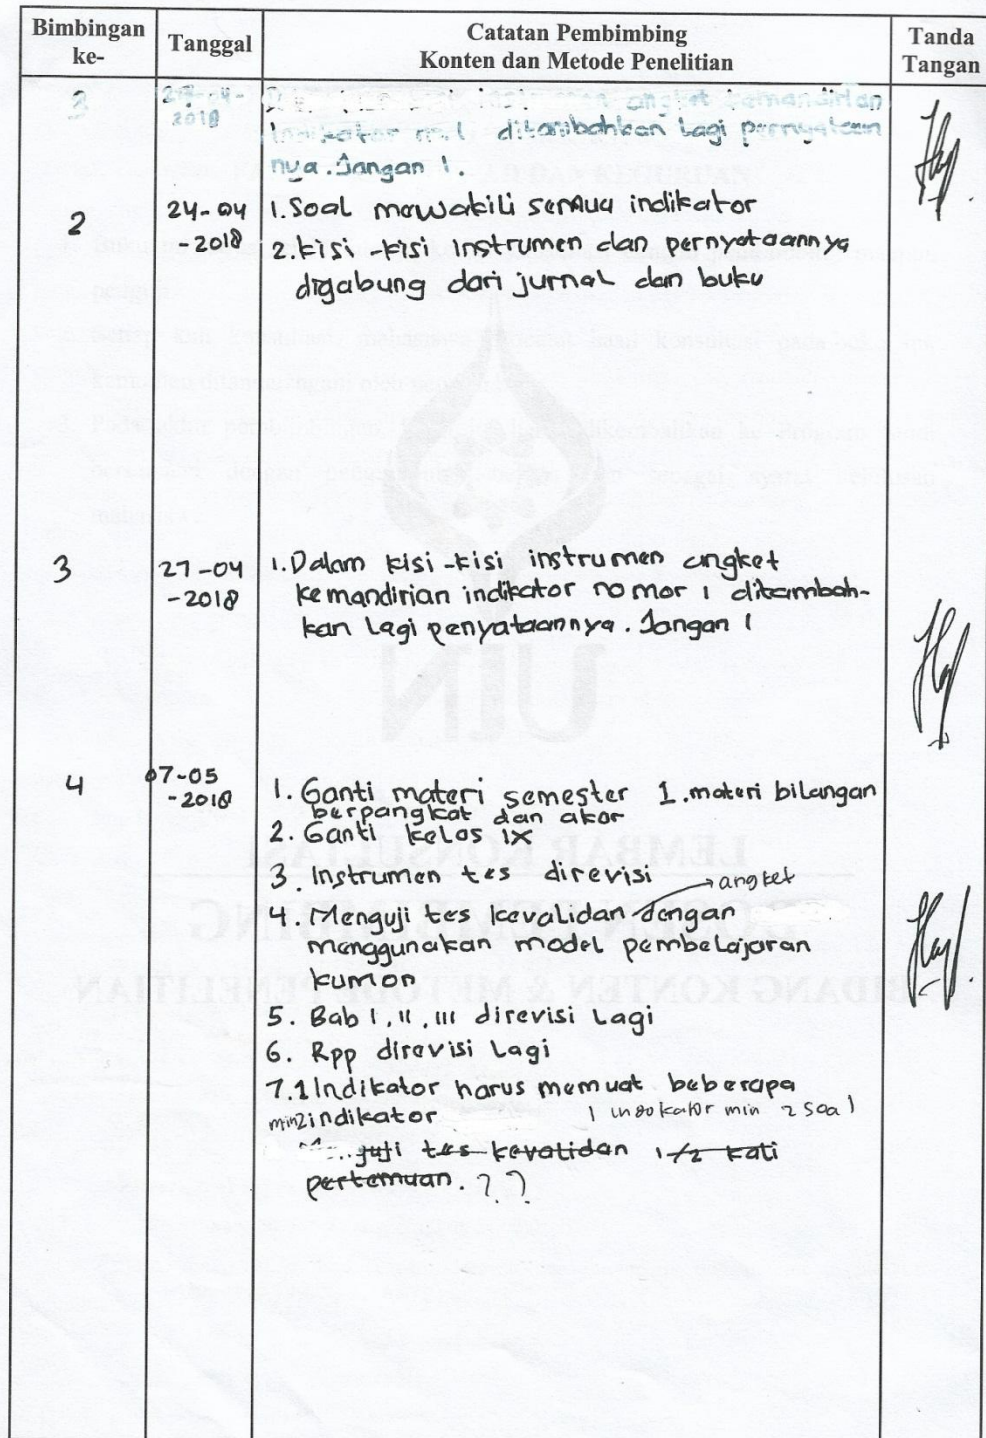 Bimbingan ke-
Tanggal
Catatan Pembimbing
Konten dan Metode Penelitian
Tanda Tangan
3
27-04-
2018
angket kemandirian
Indikator no. 1 ditambahkan lagi pernyataan
nya. Jangan 1.
2
24-04
-2018
1. Soal mewakili semua indikator
2. kisi-kisi instrumen dan pernyataannya
digabung dari jurnal dan buku
3
27-04
-2018
1. Dalam kisi-kisi instrumen angket
kemandirian indikator nomor 1 ditambah-
kan lagi penyataannya. Jangan 1
4
07-05
-2018
1. Ganti materi semester 1. materi bilangan
berpangkat dan akar
2. Ganti kelas IX
3. Instrumen tes direvisi
angket
4. Menguji tes kevalidan dengan
menggunakan model pembelajaran
kumon
5. Bab I, II, III direvisi Lagi
6. Rpp direvisi Lagi
7. 1 Indikator harus memuat beberapa
min 2 indikator 1 indikator min 2 soal
tes kevalidan 1/2 kali
pertemuan. ? ?
UIN
LEMBAR KONSULTASI
DOSEN PEMBIMBING
BIDANG KONTEN & METODE PENELITIAN